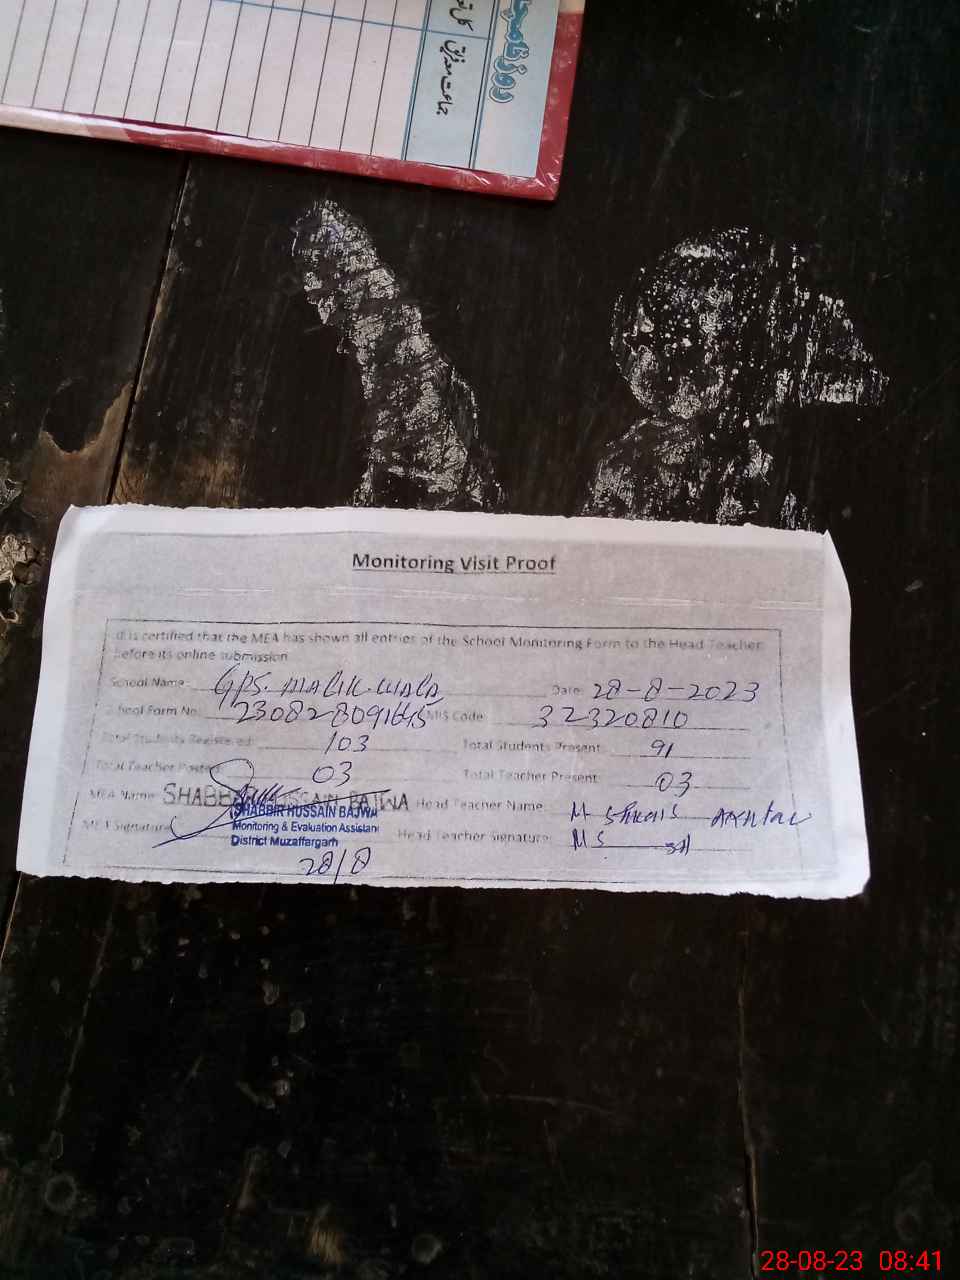 روزنامچہ
جماعت معہ فریق
Monitoring Visit Proof
It is certified that the MEA has shown all entries of the School Monitoring Form to the Head Teacher
before its online submission
School Name: GPS. MALIK WALA Date: 28-8-2023
School Form No: 230828091645 EMIS Code 32320810
Total Students Registered: 103 Total Students Present: 91
Total Teacher Posted 03 Total Teacher Present: 03
MEA Name: SHABBIR HUSSAIN BAJWA Head Teacher Name: M Akhtar
SHABBIR HUSSAIN BAJWA
MEA Signature Monitoring & Evaluation Assistant Head Teacher Signature: MS
District Muzaffargarh
28/8
28-08-23 08:41